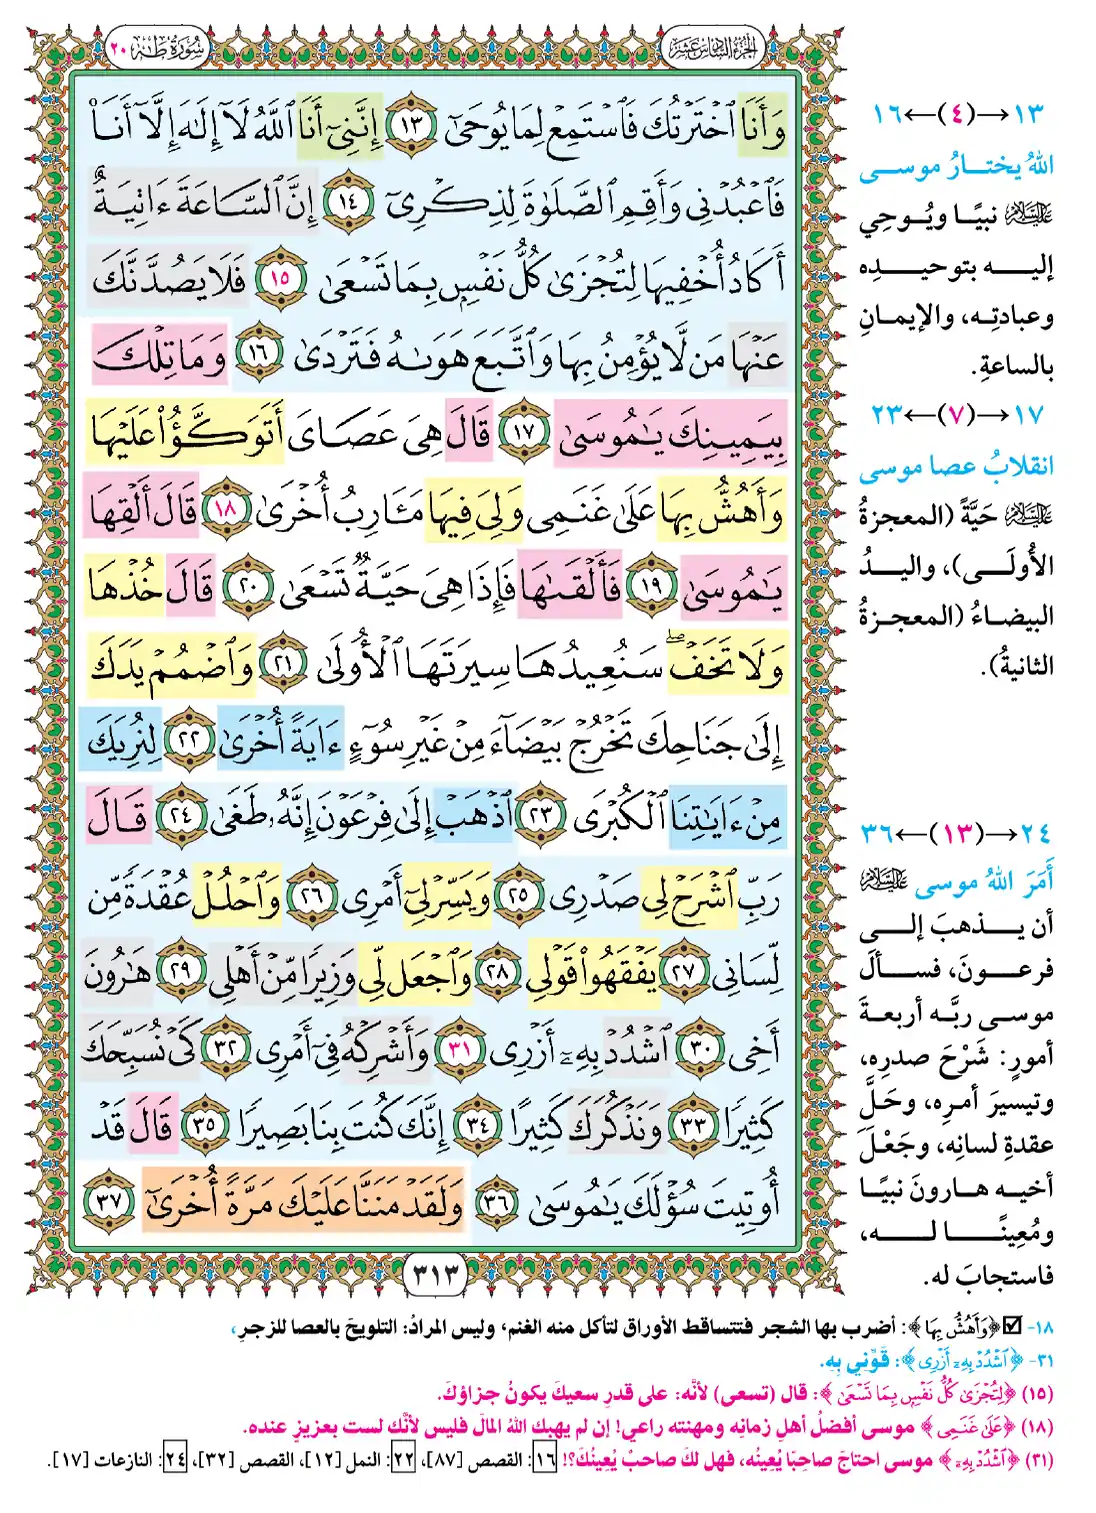 الجزء السادس عشر
سورة طه ٢٠
وَأَنَا ٱخۡتَرۡتُكَ فَٱسۡتَمِعۡ لِمَا يُوحَىٰٓ ١٣ إِنَّنِيٓ أَنَا ٱللَّهُ لَآ إِلَٰهَ إِلَّآ أَنَا۠
فَٱعۡبُدۡنِي وَأَقِمِ ٱلصَّلَوٰةَ لِذِكۡرِيٓ ١٤ إِنَّ ٱلسَّاعَةَ ءَاتِيَةٌ
أَكَادُ أُخۡفِيهَا لِتُجۡزَىٰ كُلُّ نَفۡسِۭ بِمَا تَسۡعَىٰ ١٥ فَلَا يَصُدَّنَّكَ
عَنۡهَا مَن لَّا يُؤۡمِنُ بِهَا وَٱتَّبَعَ هَوَىٰهُ فَتَرۡدَىٰ ١٦ وَمَا تِلۡكَ
بِيَمِينِكَ يَٰمُوسَىٰ ١٧ قَالَ هِيَ عَصَايَ أَتَوَكَّؤُاْ عَلَيۡهَا
وَأَهُشُّ بِهَا عَلَىٰ غَنَمِي وَلِيَ فِيهَا مَـَٔارِبُ أُخۡرَىٰ ١٨ قَالَ أَلۡقِهَا
يَٰمُوسَىٰ ١٩ فَأَلۡقَىٰهَا فَإِذَا هِيَ حَيَّةٞ تَسۡعَىٰ ٢٠ قَالَ خُذۡهَا
وَلَا تَخَفۡۖ سَنُعِيدُهَا سِيرَتَهَا ٱلۡأُولَىٰ ٢١ وَٱضۡمُمۡ يَدَكَ
إِلَىٰ جَنَاحِكَ تَخۡرُجۡ بَيۡضَآءَ مِنۡ غَيۡرِ سُوٓءٍ ءَايَةً أُخۡرَىٰ ٢٢ لِنُرِيَكَ
مِنۡ ءَايَٰتِنَا ٱلۡكُبۡرَى ٢٣ ٱذۡهَبۡ إِلَىٰ فِرۡعَوۡنَ إِنَّهُۥ طَغَىٰ ٢٤ قَالَ
رَبِّ ٱشۡرَحۡ لِي صَدۡرِي ٢٥ وَيَسِّرۡ لِيٓ أَمۡرِي ٢٦ وَٱحۡلُلۡ عُقۡدَةٗ مِّن
لِّسَانِي ٢٧ يَفۡقَهُواْ قَوۡلِي ٢٨ وَٱجۡعَل لِّي وَزِيرٗا مِّنۡ أَهۡلِي ٢٩ هَٰرُونَ
أَخِي ٣٠ ٱشۡدُدۡ بِهِۦٓ أَزۡرِي ٣١ وَأَشۡرِكۡهُ فِيٓ أَمۡرِي ٣٢ كَيۡ نُسَبِّحَكَ
كَثِيرٗا ٣٣ وَنَذۡكُرَكَ كَثِيرًا ٣٤ إِنَّكَ كُنتَ بِنَا بَصِيرٗا ٣٥ قَالَ قَدۡ
أُوتِيتَ سُؤۡلَكَ يَٰمُوسَىٰ ٣٦ وَلَقَدۡ مَنَنَّا عَلَيۡكَ مَرَّةً أُخۡرَىٰٓ ٣٧
٣١٣
١٣→(٤)←١٦
اللهُ يختارُ موسى
عليه السلام نبيًّا ويُوحِي
إليه بتوحيدِه
وعبادتِه، والإيمانِ
بالساعةِ.
١٧→(٧)←٢٣
انقلابُ عصا موسى
عليه السلام حَيَّةً (المعجزةُ
الأُولَى)، واليدُ
البيضاءُ (المعجزةُ
الثانيةُ).
٢٤→(١٣)←٣٦
أَمَرَ اللهُ موسى عليه السلام
أن يذهبَ إلى
فرعونَ، فسألَ
موسى ربَّه أربعةَ
أمورٍ: شَرْحَ صدرِه،
وتيسيرَ أمرِه، وحَلَّ
عقدةِ لسانِه، وجَعْلَ
أخيه هارونَ نبيًّا
ومُعِينًا له،
فاستجابَ له.
١٨- ☑ ﴿وَأَهُشُّ بِهَا﴾: أضرب بها الشجر فتتساقط الأوراق لتأكل منه الغنم، وليس المرادُ: التلويحَ بالعصا للزجرِ،
٣١- ﴿ٱشۡدُدۡ بِهِۦٓ أَزۡرِي﴾: قَوِّنِي بِهِ.
(١٥) ﴿لِتُجۡزَىٰ كُلُّ نَفۡسِۭ بِمَا تَسۡعَىٰ﴾: قال (تسعى) لأنَّه: على قدرِ سعيكَ يكونُ جزاؤكَ.
(١٨) ﴿عَلَىٰ غَنَمِي﴾ موسى أفضلُ أهلِ زمانِه ومهنته راعي! إن لم يهبك اللهُ المالَ فليس لأنَّك لست بعزيزٍ عنده.
(٣١) ﴿ٱشۡدُدۡ بِهِۦٓ﴾ موسى احتاجَ صاحبًا يُعِينُه، فهل لكَ صاحبٌ يُعِينُكَ؟! ١٦: القصص [٨٧]، ٢٢: النمل [١٢]، القصص [٣٢]، ٢٤: النازعات [١٧].